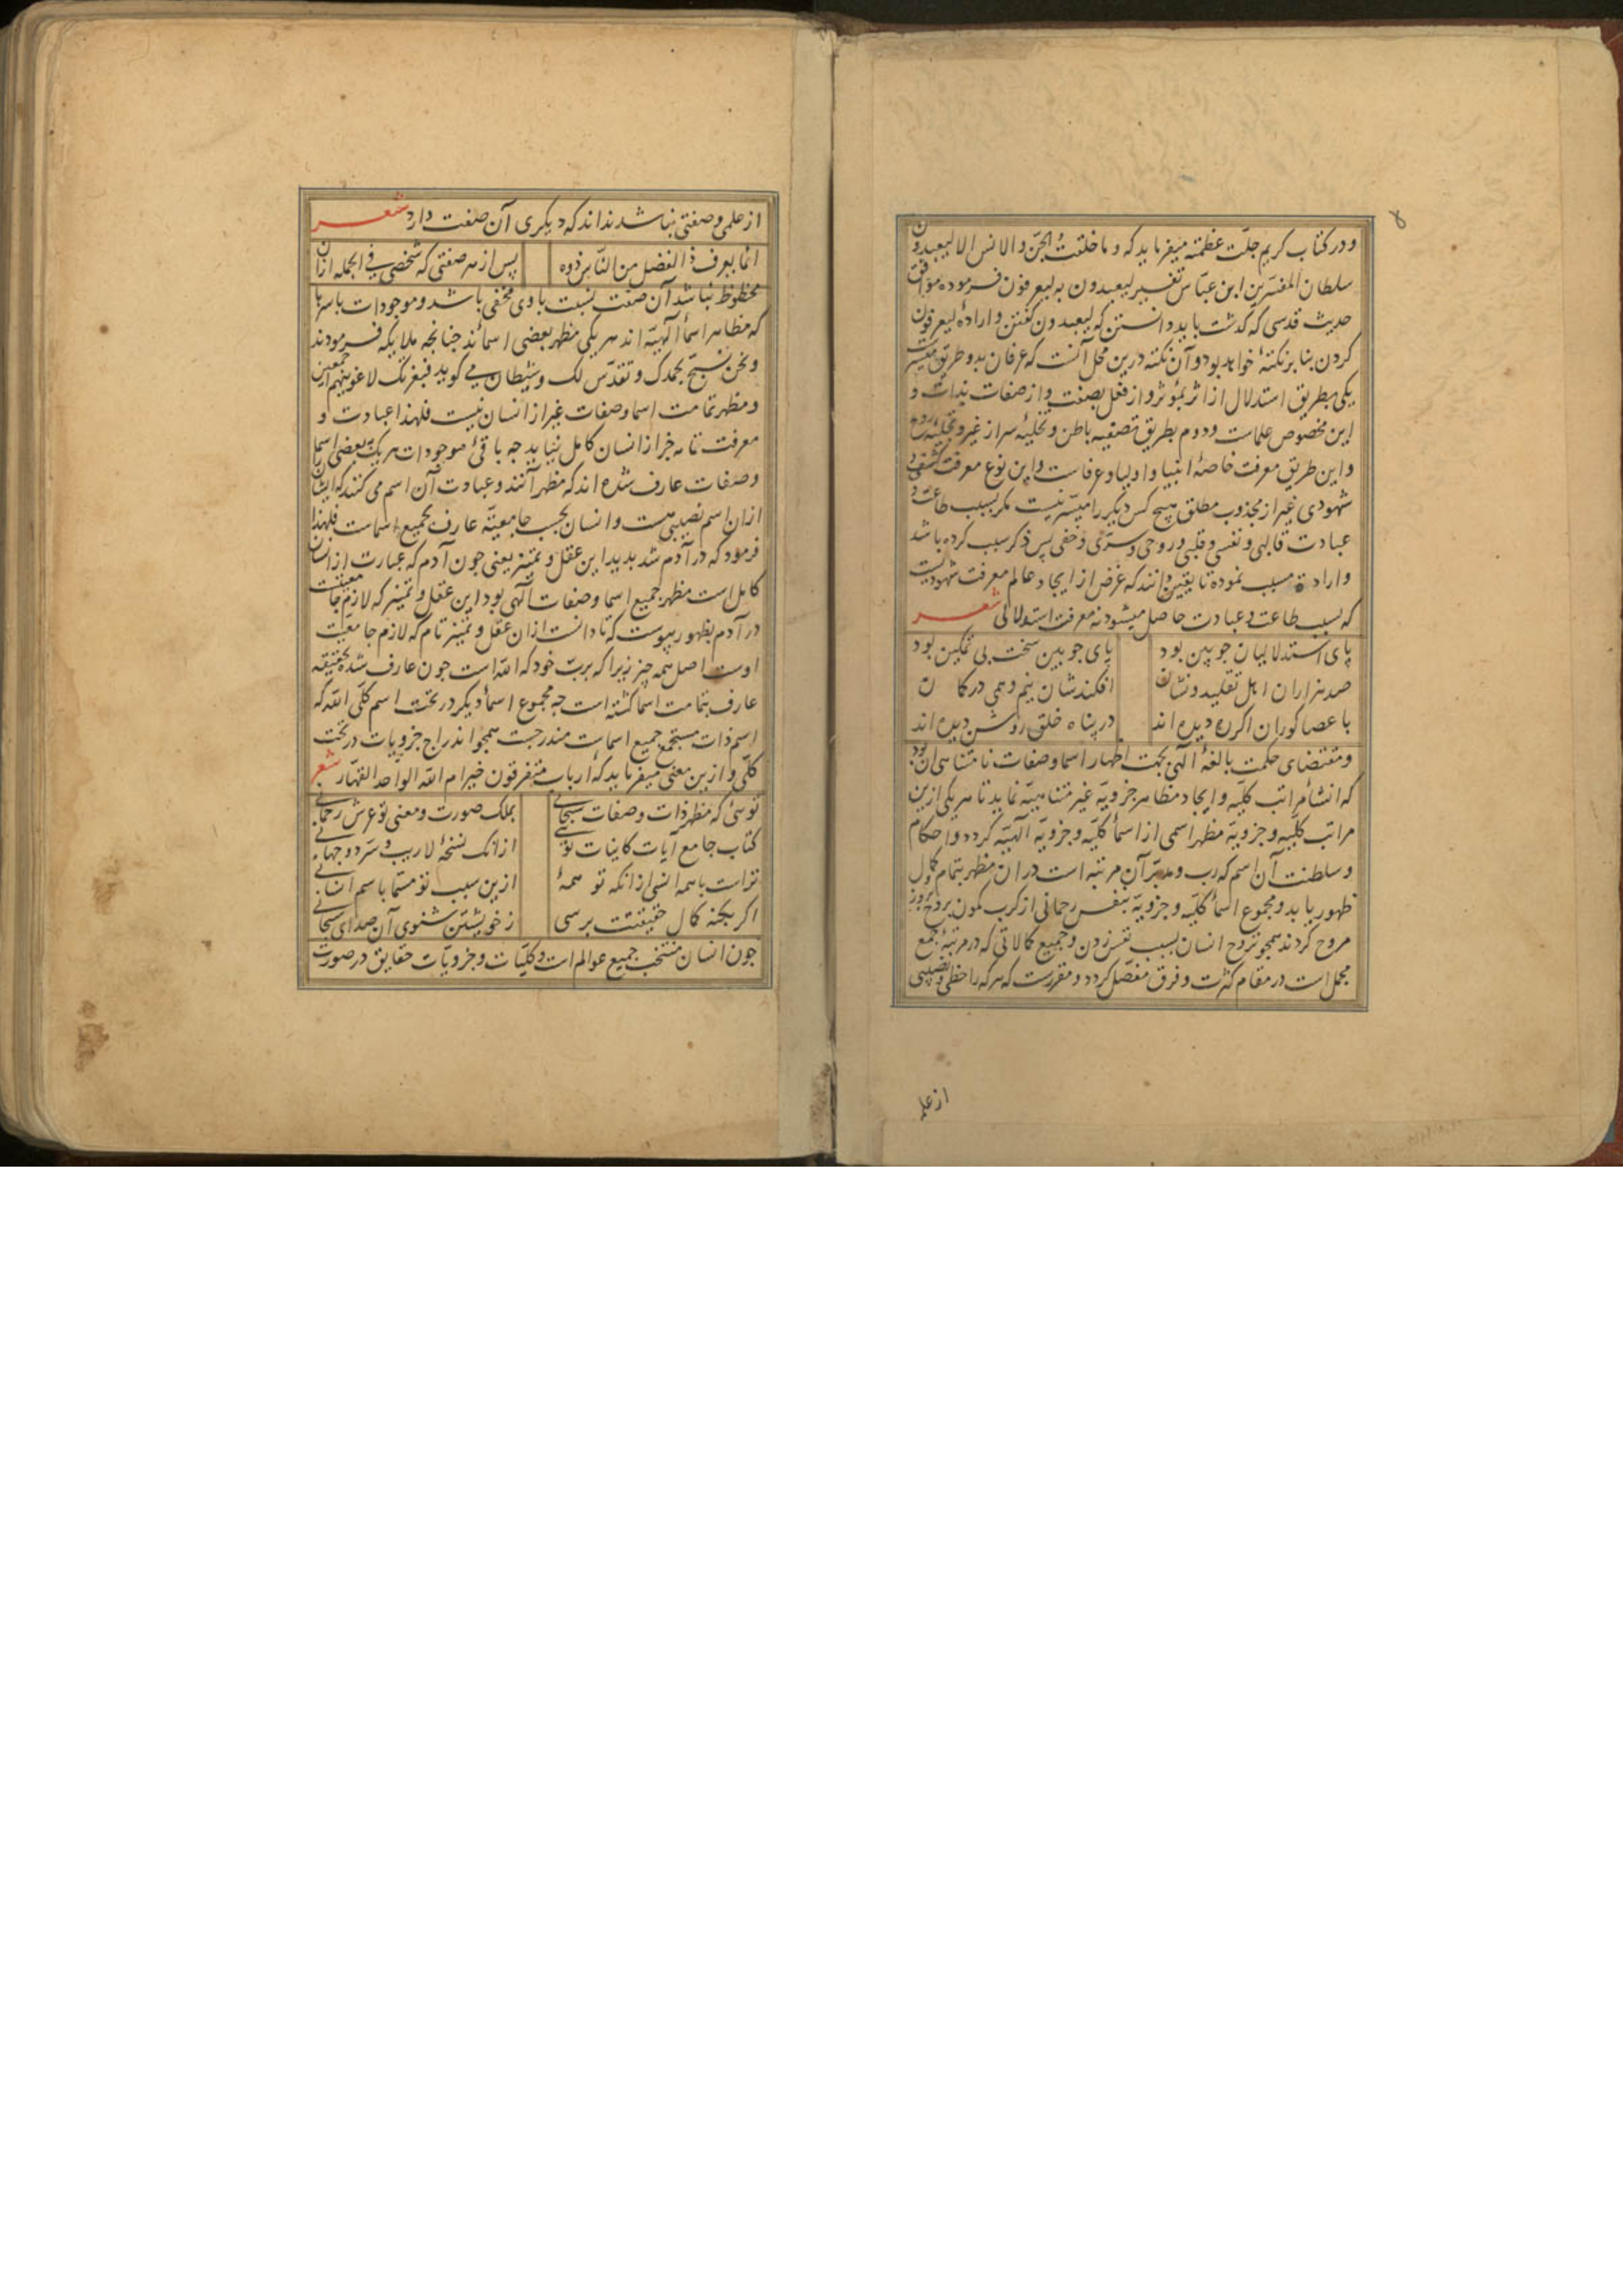 ۸
و در کتاب کریم جلّت عظمته میفرماید که و ما خلقتُ الجنّ والانس الا لیعبدون و
سلطان المفسّرین ابن عبّاس تفسیر لیعبدون به لیعرفون فرموده موافق
حدیث قدسی که گذشت باید دانستن که لیعبدون گفتن و ارادهٔ لیعرفون
کردن بنابر نکتهٔ خواهد بود و آن نکته درین محل آنست که عرفان بدو طریق میسر است
یکی بطریق استدلال از اثر بمؤثر و از فعل بصفت و از صفات بذات و
این مخصوص علماست و دوم بطریق تصفیه باطن و تخلیهٔ سر از غیر و تحلیهٔ روح
و این طریق معرفت خاصهٔ انبیا و اولیا و عرفاست و این نوع معرفت کشفی و
شهودی غیر از مجذوب مطلق هیچ کس دیگر را میسّر نیست مگر بسبب طاعت و
عبادت قالبی و نفسی و قلبی و روحی و سرّی و خفی پس ذکر سبب کرده باشد
و ارادهٔ مسبب نموده تا بیقین دانند که غرض از ایجاد عالم معرفت شهودیست
که بسبب طاعت و عبادت حاصل میشود نه معرفت استدلالی شعر
پای استدلالیان چوبین بود پای چوبین سخت بی تمکین بود
صد هزاران اهل تقلید و نشان افکندشان نیم وهمی در گمان
با عصا کوران اگر ره دیده اند در پناه خلق روشن دیده اند
و مقتضای حکمت بالغهٔ الهی بجهت اظهار اسما و صفات نامتناهی آن بود
که انشأ مراتب کلیّه و ایجاد مظاهر جزویّه غیر متناهیّه نماید تا هر یکی ازین
مراتب کلّیه و جزویّه مظهر اسمی از اسمأ کلیّه و جزویّه الهیّه گردد و احکام
و سلطنت آن اسم که رب و مدبّر آن مرتبه است در آن مظهر بتمام و کمال
ظهور یابد و مجموع اسمأ کلیّه و جزویّه بنفس رحمانی از کرب کمون بروح بروز
مروح گردند همچو تروح انسان بسبب نفس زدن و جمیع کمالاتی که در مرتبهٔ جمع
مجمل است در مقام کثرت و فرق مفصّل گردد و مقررست که هر که را حظی و نصیبی
از علم
از علمی و صفتی نباشد نداند که دیگری آن صفت دارد شعر
انما یعرف ذا الفضل من النّاس ذووه پس از هر صفتی که شخصی فی الجمله ازان
محظوظ نباشد آن صفت نسبت با وی مخفی باشد و موجودات باسرها
که مظاهر اسمأ الهیّه اند هر یکی مظهر بعضی اسمااند چنانچه ملایکه فرمودند
و نحن نسبّح بحمدک و نقدّس لک و شیطان می گوید فبعزتک لاغوینهم اجمعین
و مظهر تمامت اسما و صفات غیر از انسان نیست فلهذا عبادت و
معرفت تامه جز از انسان کامل نیاید چه باقیٔ موجودات هر یک ببعضی اسما
و صفات عارف شده اند که مظهر آنند و عبادت آن اسم می کنند که ایشانرا
ازان اسم نصیبی هست و انسان بحسب جامعیّة عارف بجمیع اسماست فلهذا
فرمود که در آدم شد پدید این عقل و تمییز یعنی چون آدم که عبارت از انسان
کامل است مظهر جمیع اسما و صفات الهی بود این عقل و تمییز که لازم جامعیّت
در آدم بظهور پیوست که تا دانست ازان عقل و تمییز تام که لازم جامعیّت
اوست اصل همه چیز زیرا که بربّ خود که الله است چون عارف شده بحقیقة
عارف بتمامت اسما گشته است چه مجموع اسمأ دیگر در تحت اسم کلّی الله که
اسم ذات مستجمع جمیع اسماست مندرجست همچو اندراج جزویات در تحت
کلّی و ازین معنی میفرماید که أرباب متفرقون خیر ام الله الواحد القهّار شعر
توئی که مظهر ذات و صفات سبحانی بملک صورت و معنی تو عرش رحمانی
کتاب جامع آیات کاینات توئی ازانک نسخهٔ لاریب و سرّ دو جهانی
تراست با همه انسی ازانکه تو همهٔ ازین سبب تو مسمّا باسم انسانی
اگر بکنه کمال حقیقتت برسی ز خویشتن شنوی آن صدای سبحانی
چون انسان منتخب جمیع عوالم است و کلیّات و جزویّات حقایق در صورت